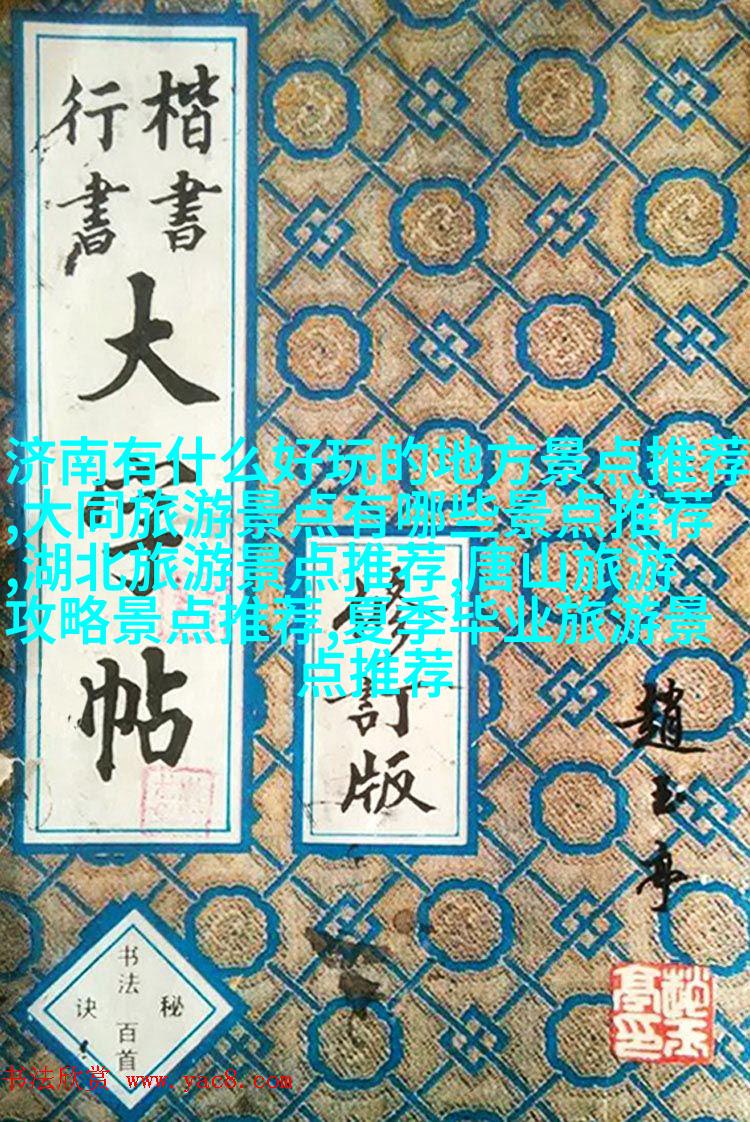 楷書
行書
大字帖
济南有什么好玩的地方景点推荐
,大同旅游景点有哪些景点推荐
,湖北旅游景点推荐,唐山旅游
攻略景点推荐,夏季毕业旅游景
点推荐
修訂版
趙玉亭
书法
秘诀
百首
书法欣赏 www.yac8.com